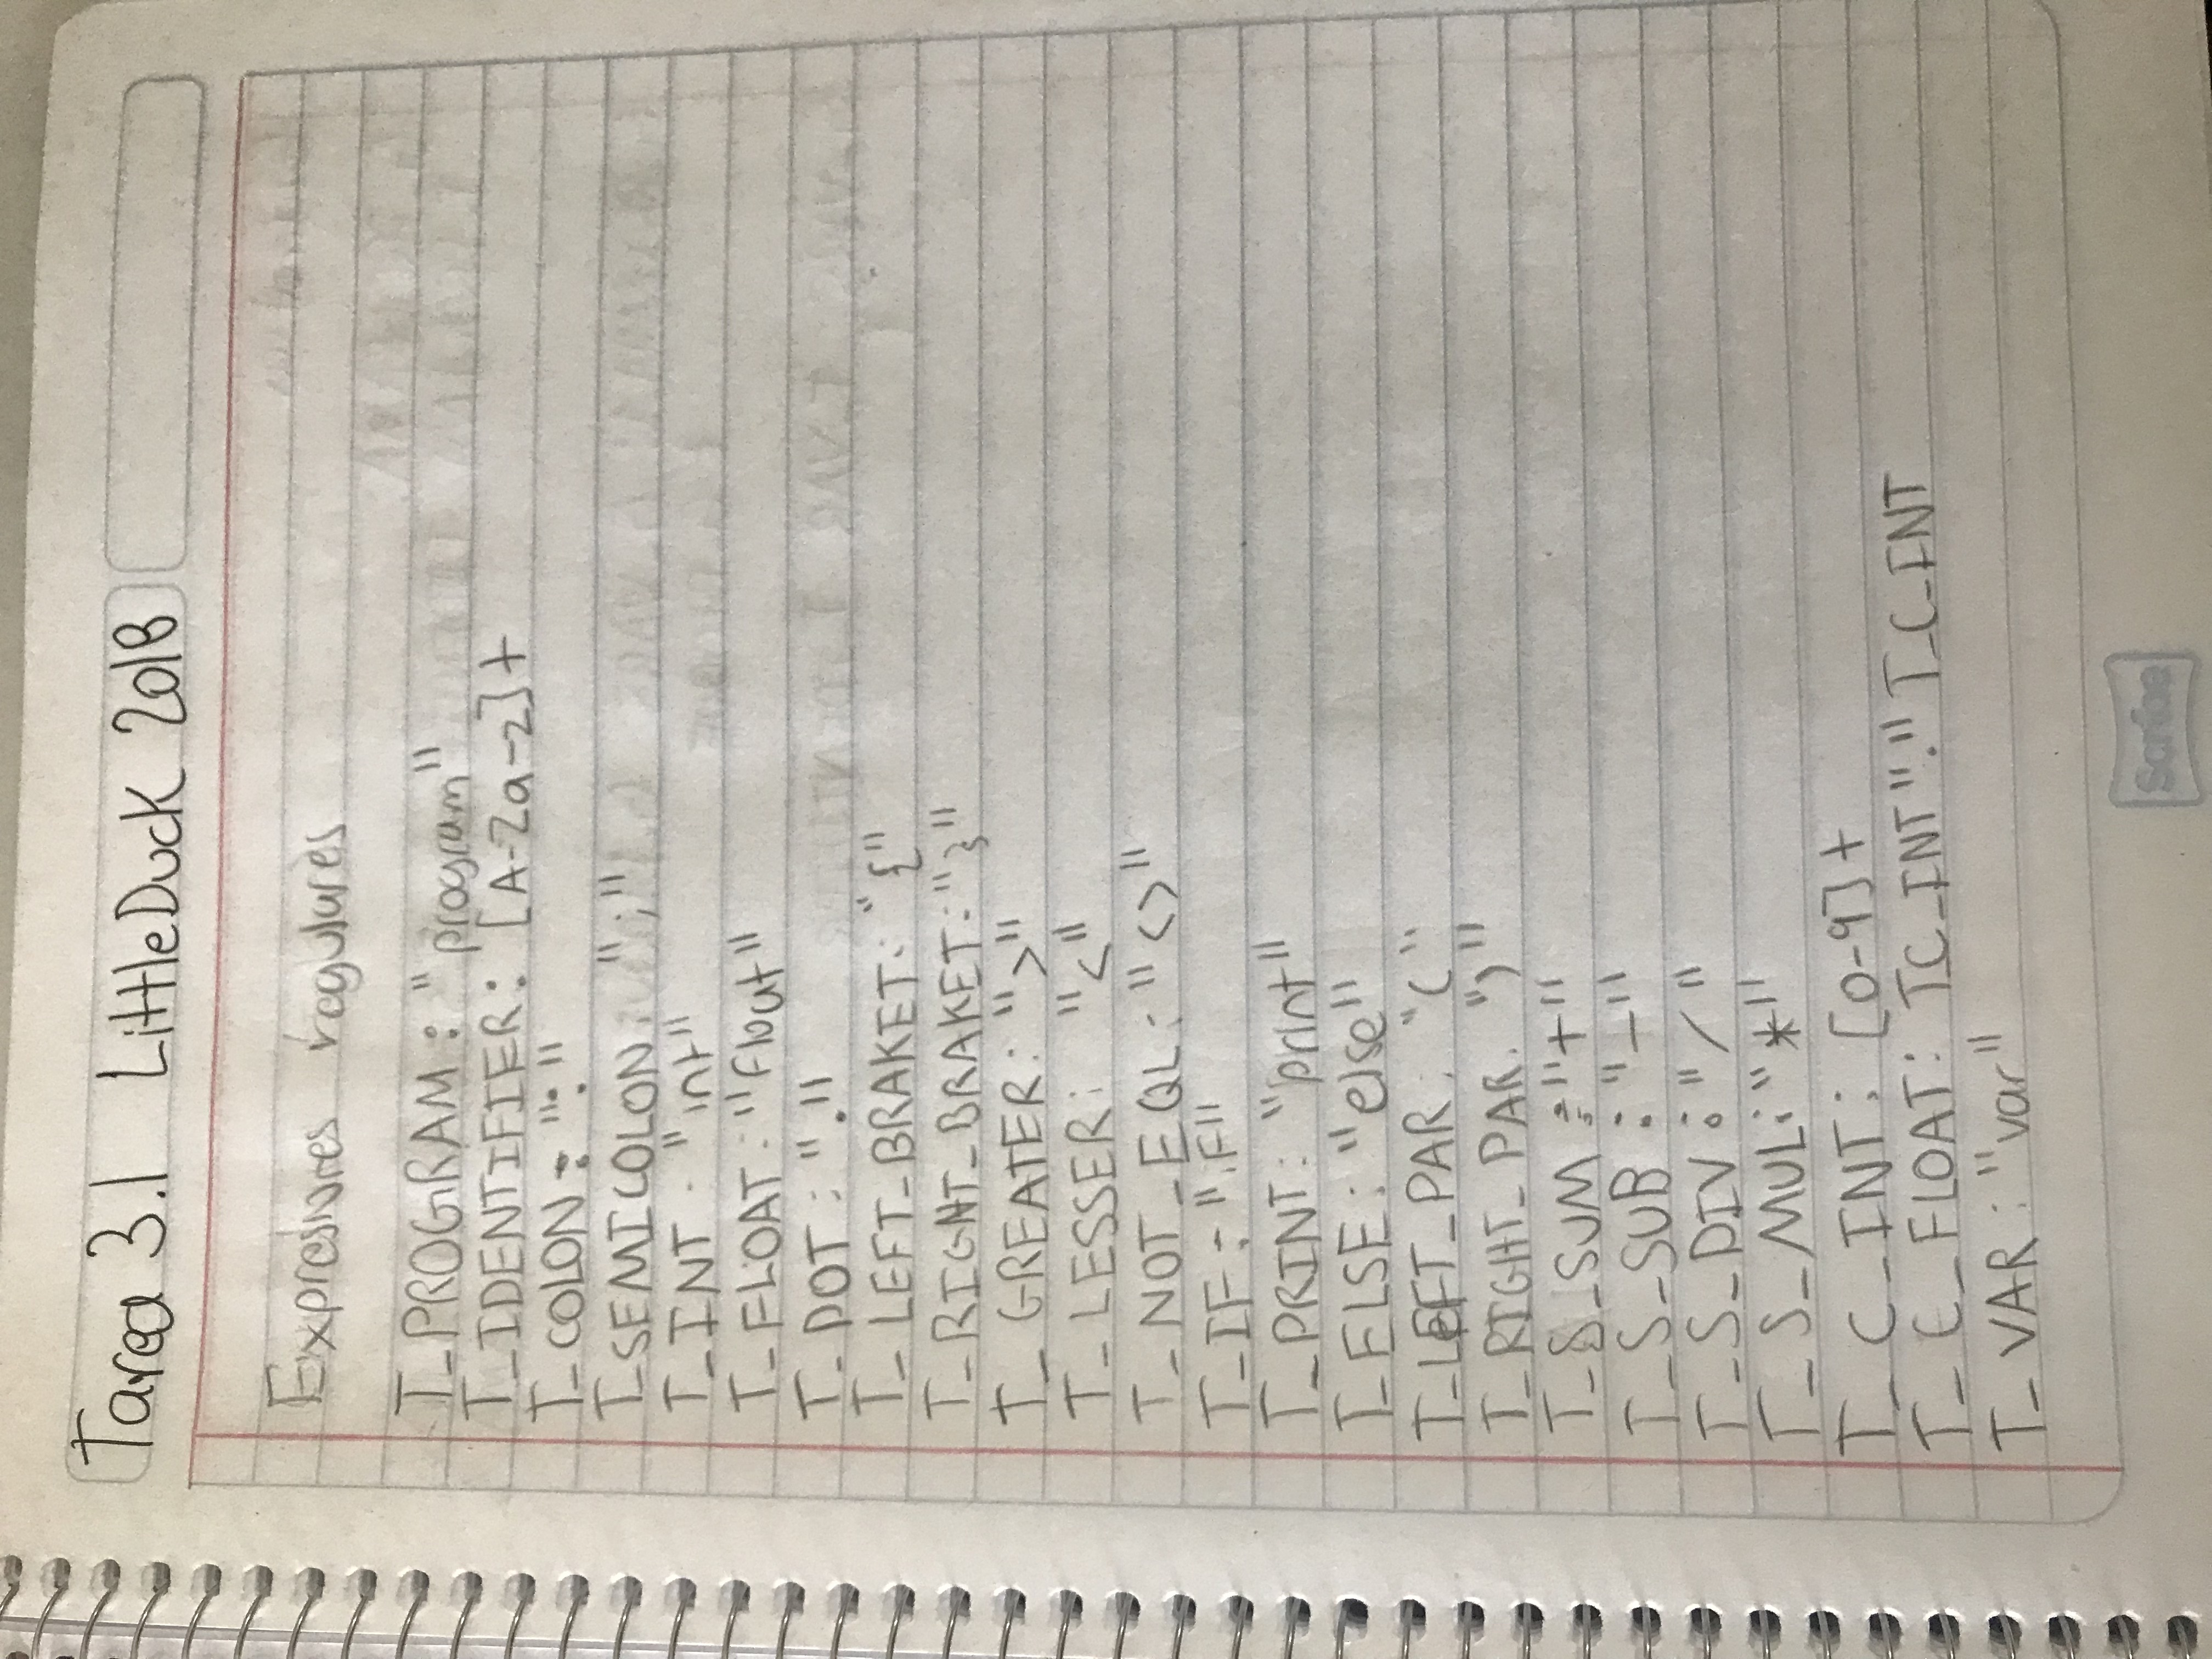 Tarea 3.1 LittleDuck 2018
Expresiones regulares
T_PROGRAM : "program"
T_IDENTIFIER : [A-Za-z]+
T_COLON : ":"
T_SEMICOLON : ";"
T_INT : "int"
T_FLOAT : "float"
T_DOT : "."
T_LEFT_BRAKET : "{"
T_RIGHT_BRAKET : "}"
T_GREATER : ">"
T_LESSER : "<"
T_NOT_EQL : "<>"
T_IF : "if"
T_PRINT : "print"
T_ELSE : "else"
T_LEFT_PAR : "("
T_RIGHT_PAR. ")"
T_S_SUM : "+"
T_S_SUB : "-"
T_S_DIV : "/"
T_S_MUL : "*"
T_C_INT : [0-9]+
T_C_FLOAT : T_C_INT "." T_C_INT
T_VAR : "var"
Scribe